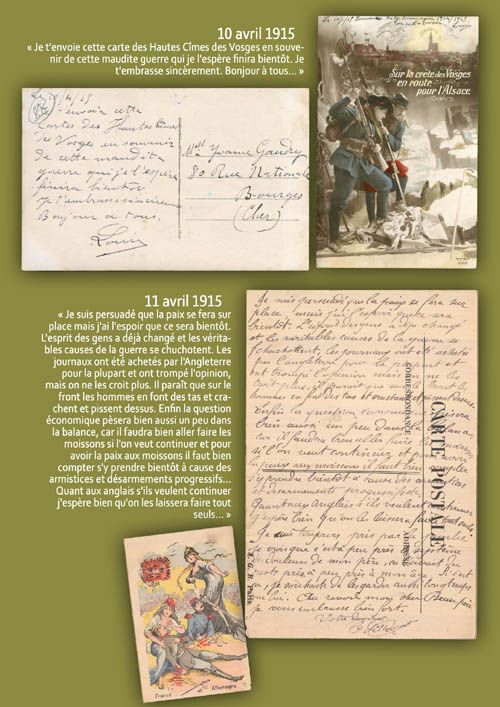 10 avril 1915
« Je t'envoie cette carte des Hautes Cîmes des Vosges en souve-
nir de cette maudite guerre qui je l'espère finira bientôt. Je
t'embrasse sincèrement. Bonjour à tous... »
t'envoie cette
Cartes des Hautes Cîmes
des Vosges en souvenir
de cette maudite
guerre qui je l'espère
finira bientôt
Je t'embrasse sincèrement
Bonjour a tous,
Louis
Mell Yvonne Goudry
80 Rue Nationale
Bourges
(Cher)
Sur la crête des Vosges
en route
pour l'Alsace.
11 avril 1915
« Je suis persuadé que la paix se fera sur
place mais j'ai l'espoir que ce sera bientôt.
L'esprit des gens a déjà changé et les vérita-
bles causes de la guerre se chuchotent. Les
journaux ont été achetés par l'Angleterre
pour la plupart et ont trompé l'opinion,
mais on ne les croit plus. Il paraît que sur le
front les hommes en font des tas et cra-
chent et pissent dessus. Enfin la question
économique pèsera bien aussi un peu dans
la balance, car il faudra bien aller faire les
moissons si l'on veut continuer et pour
avoir la paix aux moissons il faut bien
compter s'y prendre bientôt à cause des
armistices et désarmements progressifs...
Quant aux anglais s'ils veulent continuer
j'espère bien qu'on les laissera faire tout
seuls... »
Je suis persuadé que la paix se fera sur
place mais j'ai l'espoir que ce sera
bientôt. L'esprit des gens a déjà changé
et les véritables causes de la guerre se
chuchotent, les journaux ont été achetés
par l'Angleterre pour la plupart et
ont trompé l'opinion mais on ne les
croit plus. Il paraît que sur le front les
hommes en font des tas et crachent et pissent dessus.
Enfin la question économique pèsera
bien aussi un peu dans la balance,
car il faudra bien aller faire les moissons
si l'on veut continuer et pour avoir
la paix aux moissons il faut bien compter
s'y prendre bientôt à cause des armistices
et désarmements progressifs.
Quant aux Anglais s'ils veulent continuer
j'espère bien qu'on les laissera faire tout seuls.
Je suis toujours
je vous embrasse bien fort.
CORRESPONDANCE
CARTE POSTALE
ADRESSE
France et Allemagne